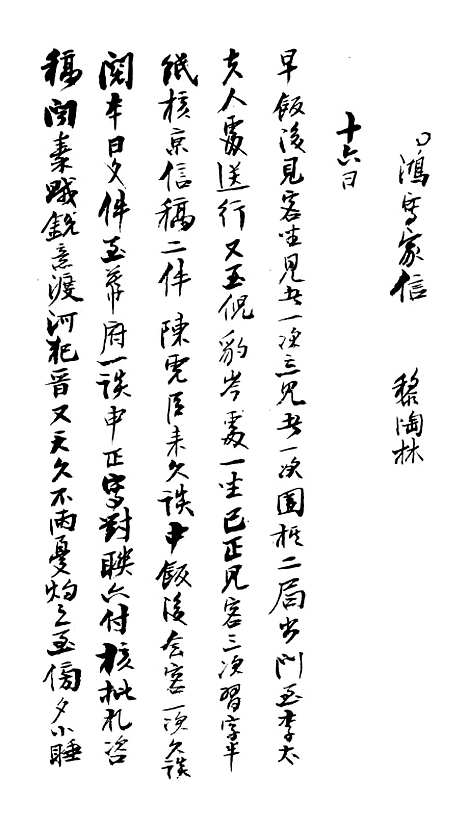 鴻寫家信 黎陶林
十六日
早飯後見客坐見者一次立見者一次圍棋二局出門至李太
夫人處送行又至倪豹岑處一坐已正見客三次習字半
紙核京信稿二件陳虎臣來久談中飯後會客一次久談
閱本日文件至幕府一談申正寫對聯六付核批札咨
稿聞秦賊銳意渡河犯晉又天久不雨憂灼之至傍夕小睡